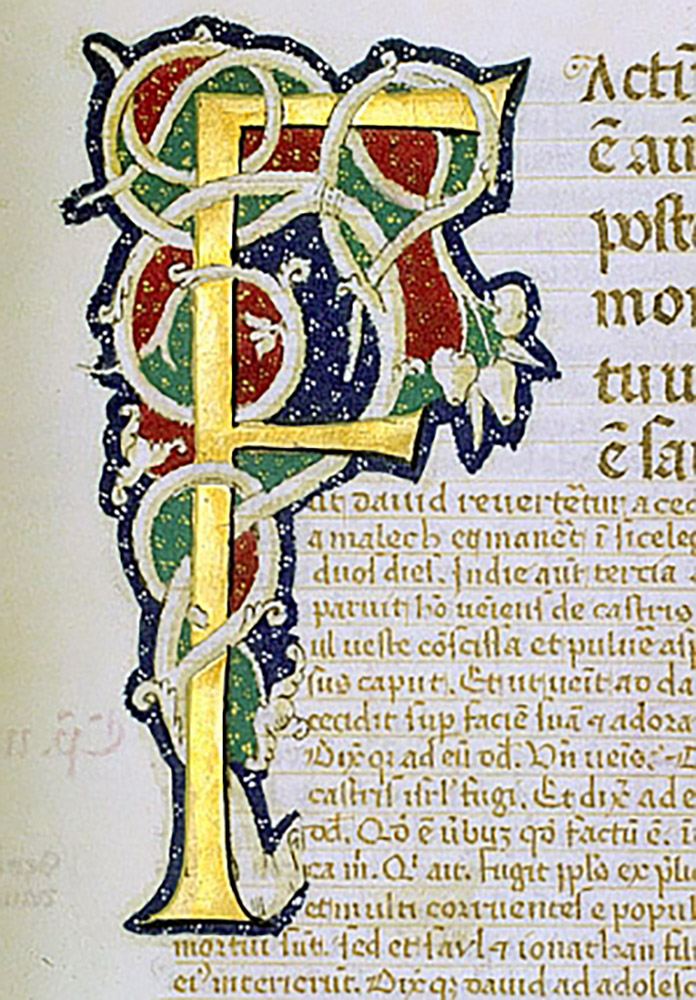 F
Actũ
ẽ aũ
poſt
mor
tuu
ẽ ſau
ut dauid reuertẽtur a ced
a malech et manẽt ĩ ſiceleg
duoſ dieſ. Indie aut̃ tertia
paruit hõ ueieuſ de caſtris
ul ueſte cõſciſſa et puluẽ aſp
ſus caput. Et ut ueĩt ad da
cecidit ſup faciẽ ſuã ⁊ adora
Dix̃ qꝫ ad eũ dd̃. Vñ ueĩs.
caſtriſ iſrl̃ fugi. Et dix̃ ad e
dd̃. Qd̃ ẽ ũbuꝫ qd̃ factũ ẽ. ĩ
ca m̃. Qⁱ ait. fugit ppl̃s ex p̃lio
et multi corruenteſ e popul
mortui ſũt. ſed et ſaul ⁊ ionathan fil
eiꝰ interierũt. Dix̃ qꝫ dauid ad adoleſc